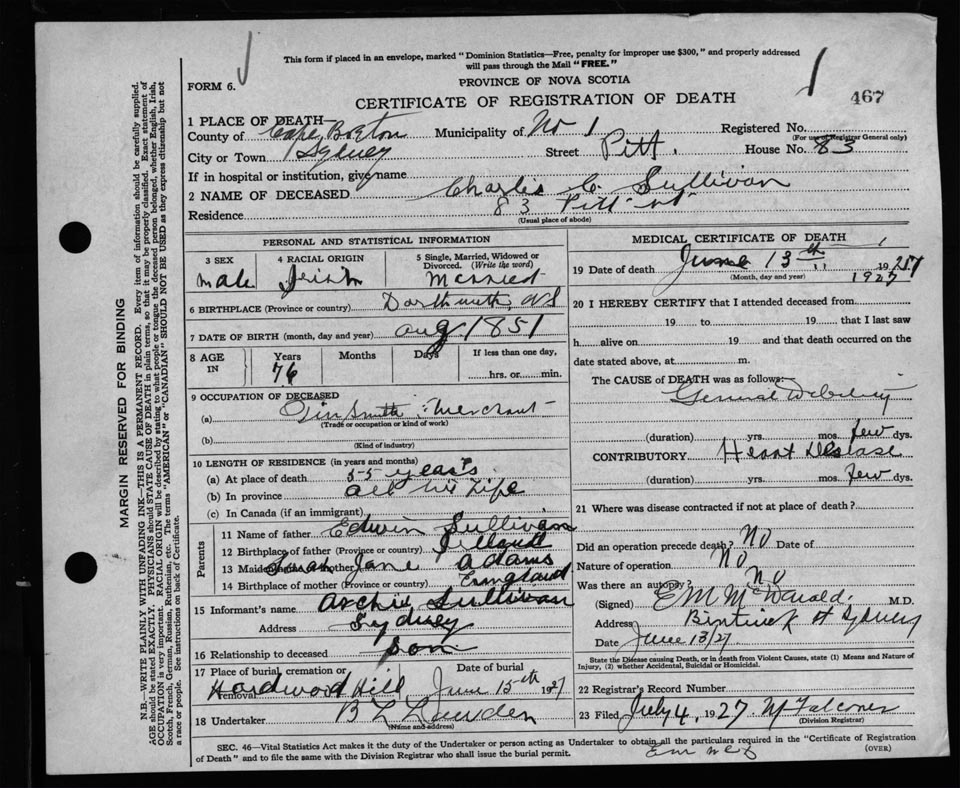 This form if placed in an envelope, marked "Dominion Statistics—Free, penalty for improper use $300," and properly addressed
will pass through the Mail "FREE."
PROVINCE OF NOVA SCOTIA
FORM 6.
CERTIFICATE OF REGISTRATION OF DEATH
467
1 PLACE OF DEATH—
County of Cape Breton Municipality of No 1 Registered No.
(For use of Registrar General only)
City or Town Sydney Street Pitt. House No. 83
If in hospital or institution, give name
2 NAME OF DECEASED Charlis C. Sullivan
Residence 83 Pitt st
(Usual place of abode)
PERSONAL AND STATISTICAL INFORMATION
3 SEX
male
4 RACIAL ORIGIN
Irish
5 Single, Married, Widowed or
Divorced. (Write the word)
Married
6 BIRTHPLACE (Province or country) Dartmouth, NS
7 DATE OF BIRTH (month, day and year) aug 1851
8 AGE
IN
Years
76
Months
Days
If less than one day,
hrs. or min.
9 OCCUPATION OF DECEASED
(a) Tin Smith Merchant
(Trade or occupation or kind of work)
(b)
(Kind of industry)
10 LENGTH OF RESIDENCE (in years and months)
(a) At place of death 55 years
(b) In province all his Life
(c) In Canada (if an immigrant)
Parents
11 Name of father Edwin Sullivan
12 Birthplace of father (Province or country)
13 Maiden name of mother Jane Adams
14 Birthplace of mother (Province or country) England
15 Informant's name Archie Sullivan
Address Sydney
16 Relationship to deceased Son
17 Place of burial, cremation or
removal Hardwood Hill,
Date of burial
June 15th 1927
18 Undertaker B L
(Name and address)
MEDICAL CERTIFICATE OF DEATH
19 Date of death June 13th 1927
(Month, day and year)
20 I HEREBY CERTIFY that I attended deceased from
19 to 19 that I last saw
h alive on 19 and that death occurred on the
date stated above, at m.
The CAUSE of DEATH was as follows:
General Debility
(duration) yrs. mos. few dys.
CONTRIBUTORY Heart Disease
(duration) yrs. mos. few dys.
21 Where was disease contracted if not at place of death?
Did an operation precede death? No Date of
Nature of operation No
Was there an autopsy? no
(Signed) E M M M.D.
Address St Sydney
Date June 13/27
State the Disease causing Death, or in death from Violent Causes, state (1) Means and Nature of
Injury, (2) whether Accidental, Suicidal or Homicidal.
22 Registrar's Record Number
23 Filed July 4, 1927 M Falconer
(Division Registrar)
SEC. 46—Vital Statistics Act makes it the duty of the Undertaker or person acting as Undertaker to obtain all the particulars required in the "Certificate of Registration
of Death" and to file the same with the Division Registrar who shall issue the burial permit.
(OVER)
MARGIN RESERVED FOR BINDING
N.B.—WRITE PLAINLY WITH UNFADING INK—THIS IS A PERMANENT RECORD. Every item of information should be carefully supplied.
AGE should be stated EXACTLY. PHYSICIANS should STATE CAUSE OF DEATH in plain terms, so that it may be properly classified. Exact statement of
OCCUPATION is very important. RACIAL ORIGIN will be described by stating to what people or tongue the deceased person belonged, whether English, Irish,
Scotch, French, German, Russian, Ruthenian, etc. The terms "AMERICAN" or "CANADIAN" SHOULD NOT BE USED as they express citizenship but not
a race or people. See instructions on back of Certificate.